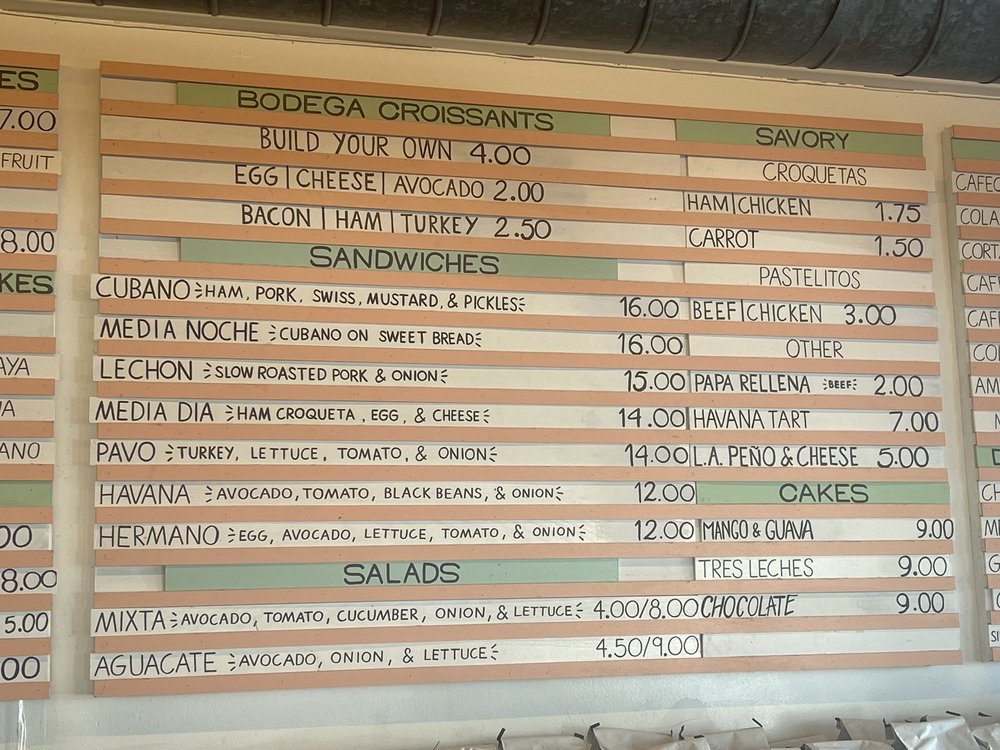 ES
7.00
FRUIT
8.00
KES
AYA
ANO
00
8.00
5.00
00
BODEGA CROISSANTS
BUILD YOUR OWN 4.00
EGG|CHEESE|AVOCADO 2.00
BACON|HAM|TURKEY 2.50
SANDWICHES
CUBANO HAM, PORK, SWISS, MUSTARD, & PICKLES 16.00
MEDIA NOCHE CUBANO ON SWEET BREAD 16.00
LECHON SLOW ROASTED PORK & ONION 15.00
MEDIA DIA HAM CROQUETA, EGG, & CHEESE 14.00
PAVO TURKEY, LETTUCE, TOMATO, & ONION 14.00
HAVANA AVOCADO, TOMATO, BLACK BEANS, & ONION 12.00
HERMANO EGG, AVOCADO, LETTUCE, TOMATO, & ONION 12.00
SALADS
MIXTA AVOCADO, TOMATO, CUCUMBER, ONION, & LETTUCE 4.00/8.00
AGUACATE AVOCADO, ONION, & LETTUCE 4.50/9.00
SAVORY
CROQUETAS
HAM|CHICKEN 1.75
CARROT 1.50
PASTELITOS
BEEF|CHICKEN 3.00
OTHER
PAPA RELLENA BEEF 2.00
HAVANA TART 7.00
L.A. PEÑO & CHEESE 5.00
CAKES
MANGO & GUAVA 9.00
TRES LECHES 9.00
CHOCOLATE 9.00
CAFEC
COLA
CORTA
CAFE
CAFE
COL
AM
D
CH